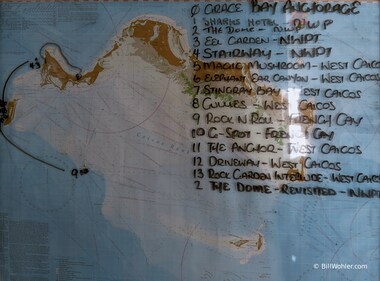 0 GRACE BAY ANCHORAGE
1 SHARKS HOTEL - NWP
2 THE DOME - NWP
3 EEL GARDEN - NWPT
4 STAIRWAY - NWPT
5 MAGIC MUSHROOM - WEST CAICOS
6 ELEPHANT EAR CANYON - WEST CAICOS
7 STINGRAY BAY - WEST CAICOS
8 GULLIES - WEST CAICOS
9 ROCK N ROLL - FRENCH CAY
10 G-SPOT - FRENCH CAY
11 THE ANCHOR - WEST CAICOS
12 DRIVEWAY - WEST CAICOS
13 ROCK GARDEN INTERLUDE - WEST CAICOS
2 THE DOME - REVISITED - NWPT
© BillWohler.com